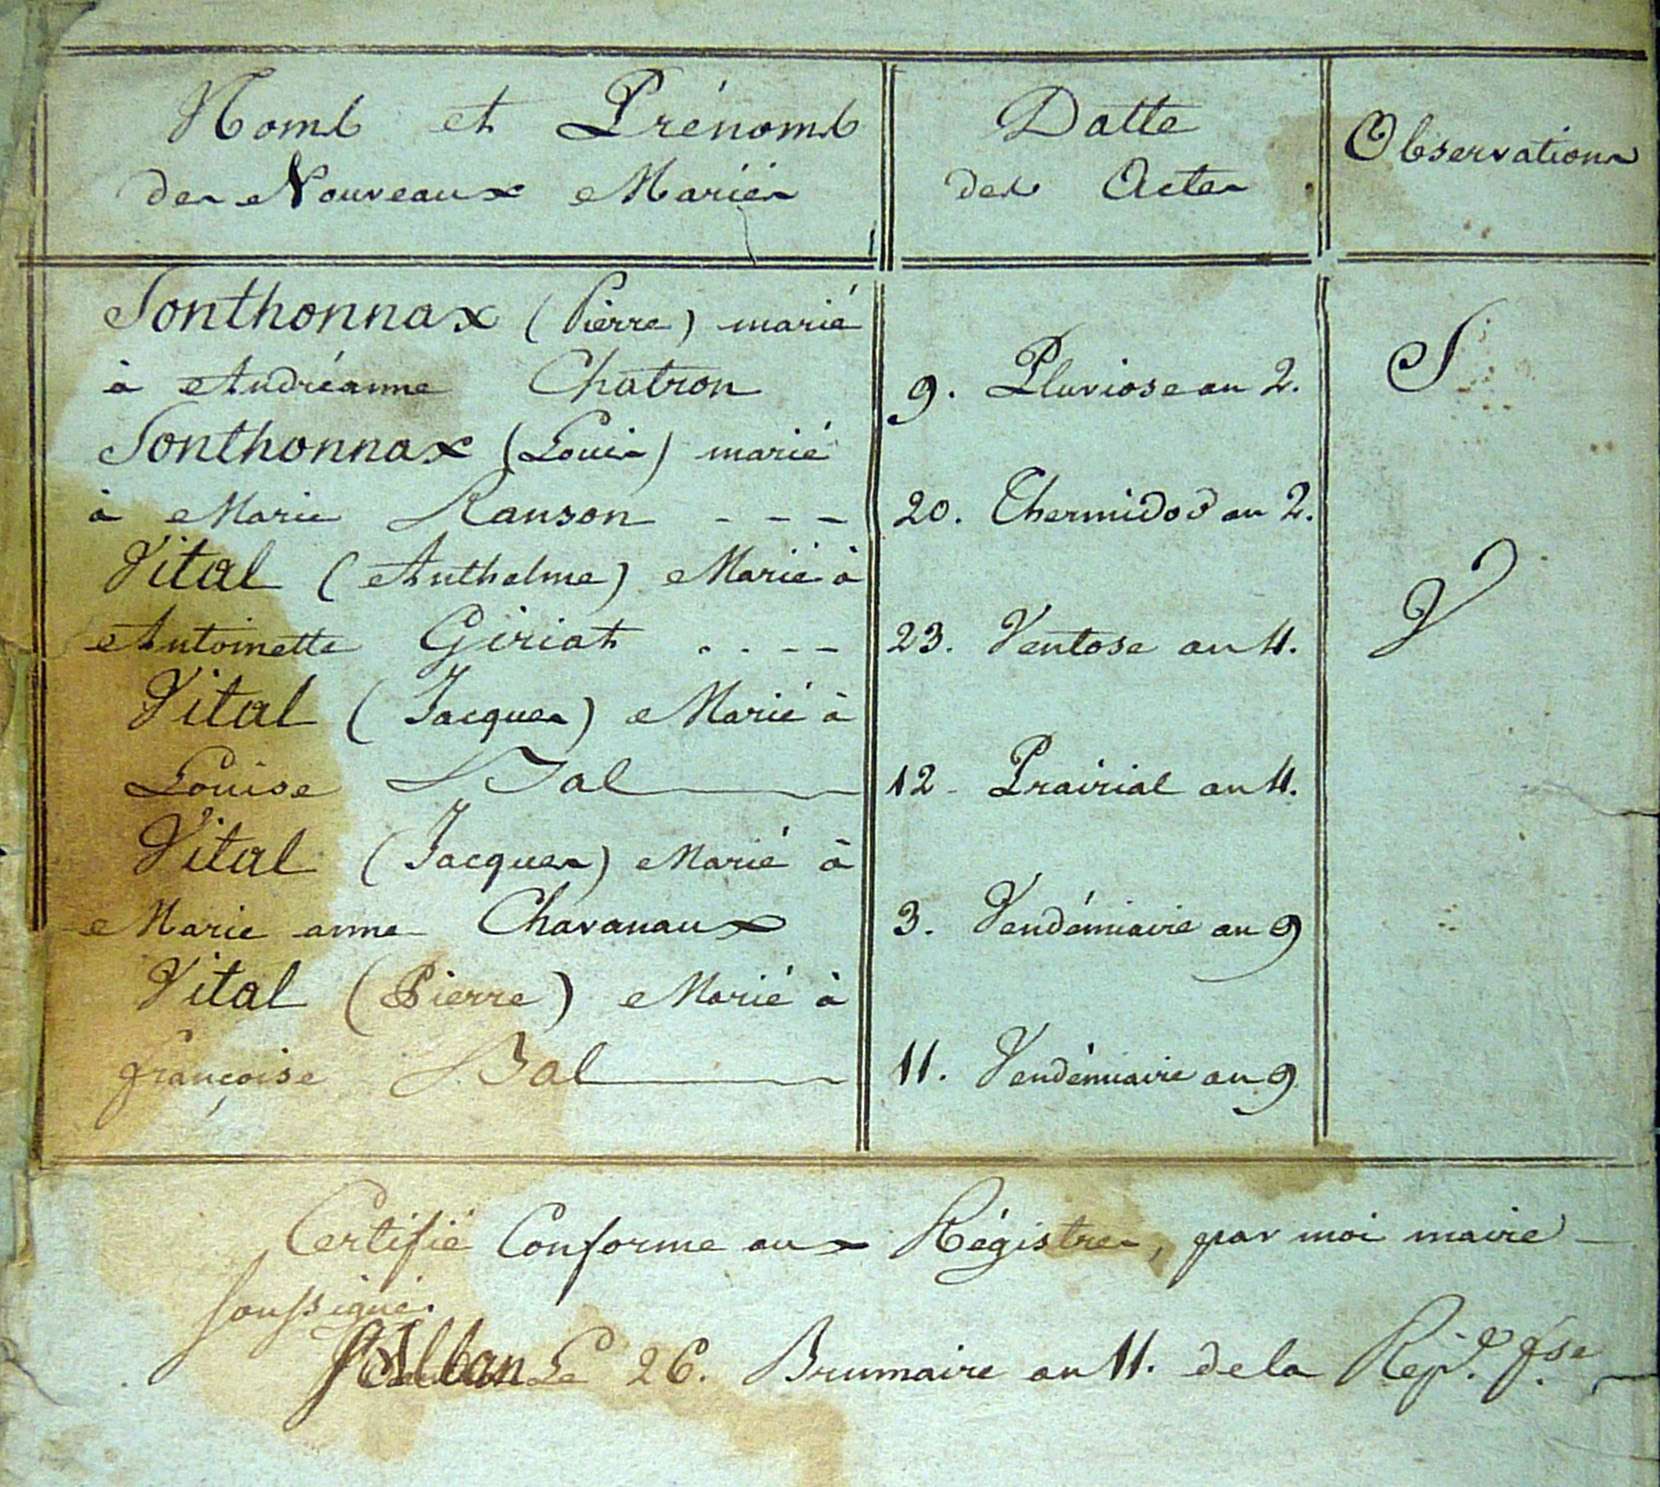 Noms et Prénoms
des Nouveaux Mariés
Datte
des Actes
Observations
Sonthonnax (Pierre) marié
à Andréanne Chatron
9. Pluviose an 2.
S
Sonthonnax (Louis) marié
à Marie Ranson - - -
20. Thermidor an 2.
Vital (Anthelme) Marié à
Antoinette Giriat . . - -
23. Ventose an 4.
V
Vital (Jacques) Marié à
Louise Bal
12 - Prairial an 4.
Vital (Jacques) Marié à
Marie anne Chavanaux
3. Vendémiaire an 9
Vital (Pierre) Marié à
françoise Bal
11. Vendémiaire an 9
Certifié Conforme aux Régistres, par moi maire
soussigné.
Le 26. Brumaire an 11. de la Rep.e f.se